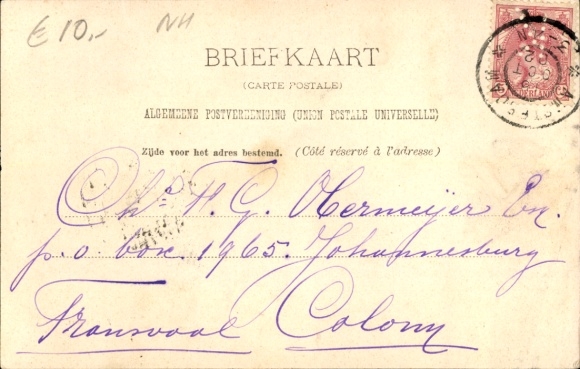 € 10,- NH
BRIEFKAART
(CARTE POSTALE)
ALGEMEENE POSTVEREENIGING (UNION POSTALE UNIVERSELLE)
Zijde voor het adres bestemd. (Côté réservé à l'adresse)
H. G. Obermeijer
p.o box. 1965. Johannesburg
Transvaal Colony
NEDERLAND
AMSTERDAM